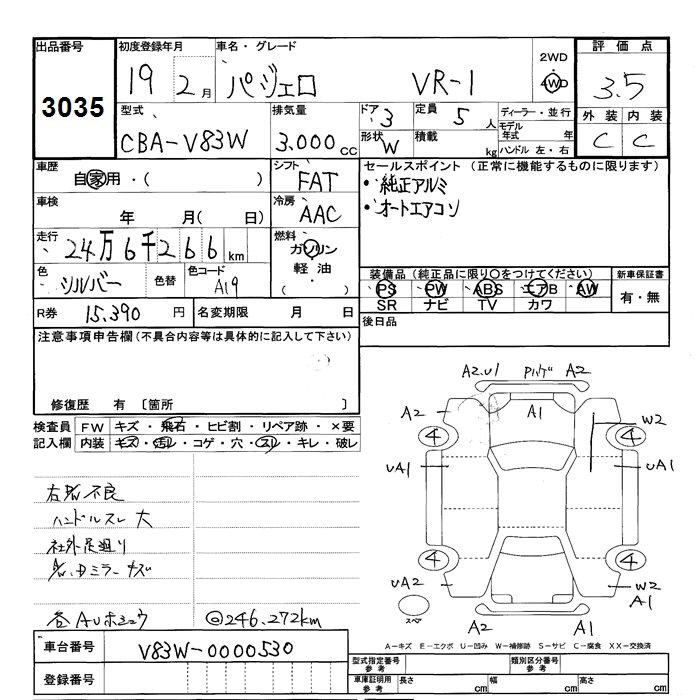 出品番号 初度登録年月 車名・グレード 2WD 評価点
3035 19 2月 パジェロ VR-1 4WD 3.5
型式 排気量 ドア 定員 ディーラー・並行 外装 内装
CBA-V83W 3.000cc 3 5人 モデル年式 年 C C
形状 W 積載 kg ハンドル 左・右
車歴 シフト セールスポイント (正常に機能するものに限ります)
自家用・( ) FAT ・純正アルミ
車検 冷房 ・オートエアコン
年 月(日) AAC
走行 燃料
24万6千266km ガソリン
色 色替 色コード 軽油 装備品(純正品に限り○をつけてください) 新車保証書
シルバー A19 ( ) PS PW ABS エアB AW 有・無
SR ナビ TV カワ
R券 15.390円 名変期限 月 日 後日品
注意事項申告欄(不具合内容等は具体的に記入して下さい)
修復歴 有 〔箇所 〕
検査員 FW キズ・飛石・ヒビ割・リペア跡・×要
記入欄 内装 キズ・汚レ・コゲ・穴・スレ・キレ・破レ
不良
ハンドルスレ 大
社外足廻り
ミラー キズ
各AUホシュウ ◎246.272km
A2.U1 A2
A2 A1 W2
4 4
UA1 UA1
4 4
UA2 W2
A1
スペア
A2 A1
A-キズ E-エクボ U-凹み W-補修跡 S-サビ C-腐食 XX-交換済
車台番号 V83W-0000530
登録番号
型式指定番号 参考 類別区分番号 参考
車庫証明用 参考 長さ cm 幅 cm 高さ cm